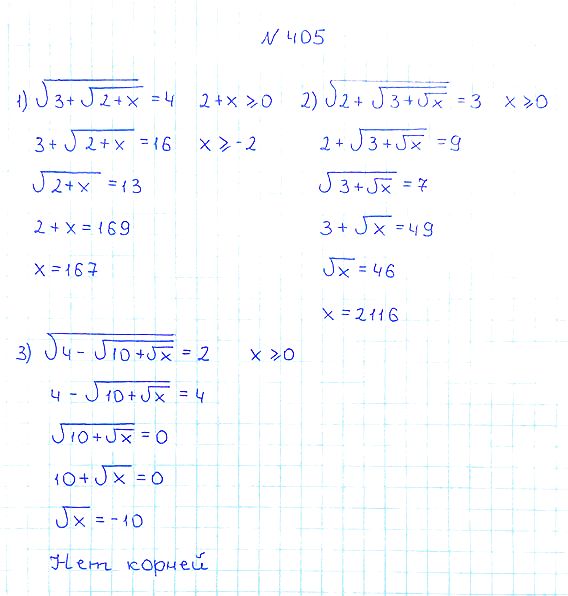 № 405
1) √(3+√(2+x)) = 4   2+x ≥ 0
3+√(2+x) = 16   x ≥ -2
√(2+x) = 13
2+x = 169
x = 167
2) √(2+√(3+√x)) = 3   x ≥ 0
2+√(3+√x) = 9
√(3+√x) = 7
3+√x = 49
√x = 46
x = 2116
3) √(4-√(10+√x)) = 2   x ≥ 0
4-√(10+√x) = 4
√(10+√x) = 0
10+√x = 0
√x = -10
Нет корней